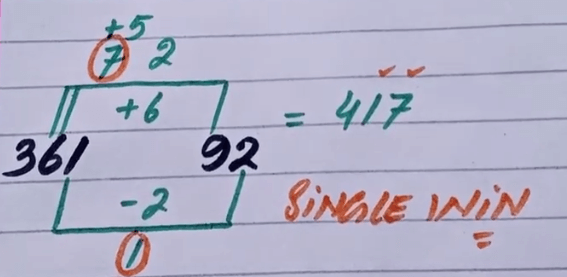 +5
7 2
+6 = 417
361 92
-2 SINGLE WIN
1